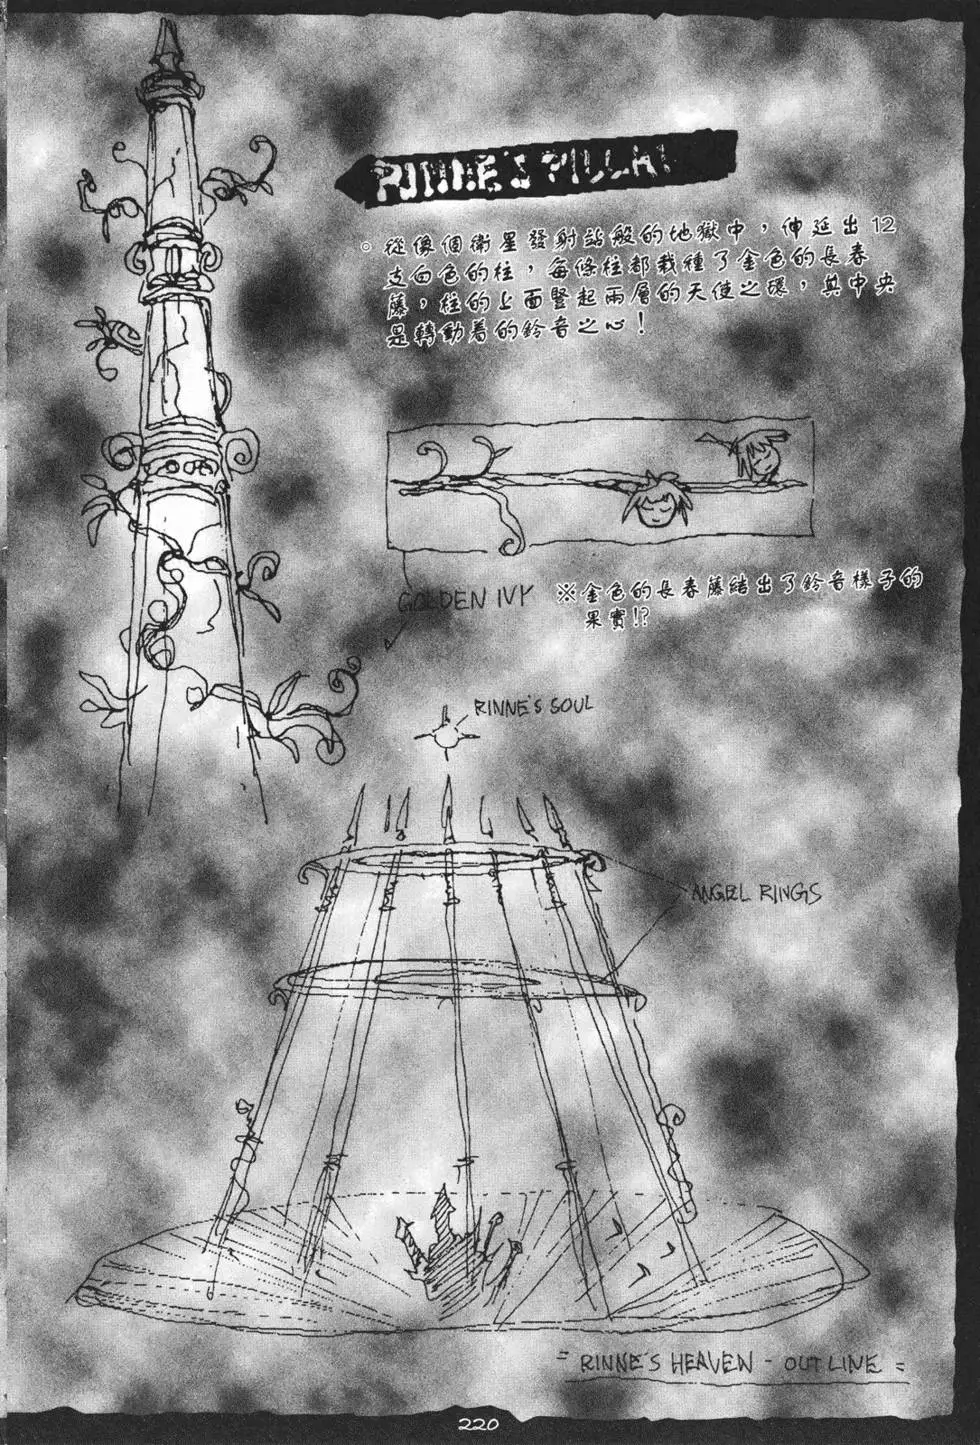 RINNE'S PILLAR
。從像個衛星發射詣般的地獄中，伸延出12
支白色的柱，每條柱都栽種了金色的長春
藤，柱的上面豎起兩層的天使之環，其中央
是轉動着的鈴音之心！
GOLDEN IVY
※金色的長春藤結出了鈴音樣子的
果實!?
RINNE'S SOUL
ANGEL RINGS
= RINNE'S HEAVEN - OUTLINE =
220